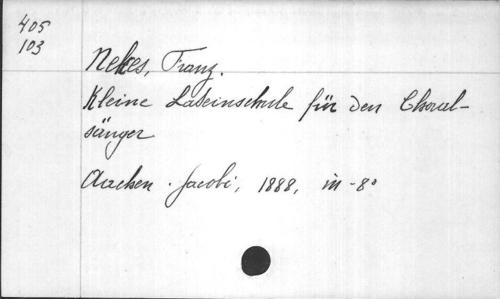 405
103
Nekes, Franz.
Kleine Lateinschule für den Choral-
sänger
Aachen. Jacobi, 1888, in-8°